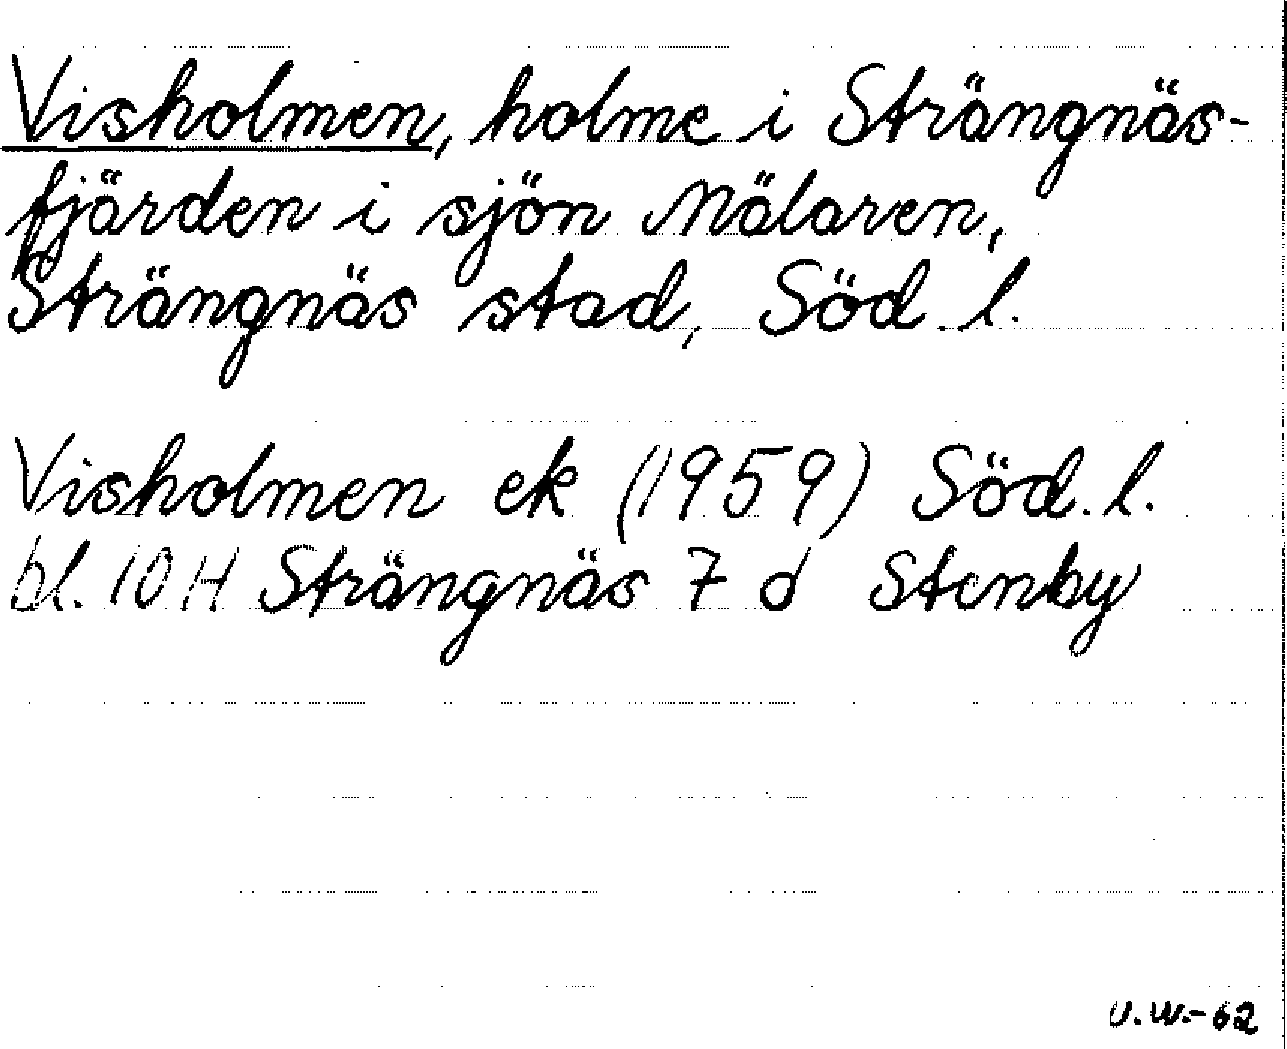 Visholmen, holme i Strängnäs-
fjärden i sjön Mälaren,
Strängnäs stad, Söd. l.
Visholmen ek (1959) Söd. l.
bl. 10 H Strängnäs 7 d Stenby
U.W.-62